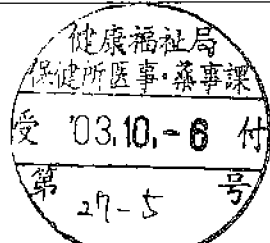 健康福祉局
保健所医事・薬事課
受 '03.10.-6 付
第 27-5 号